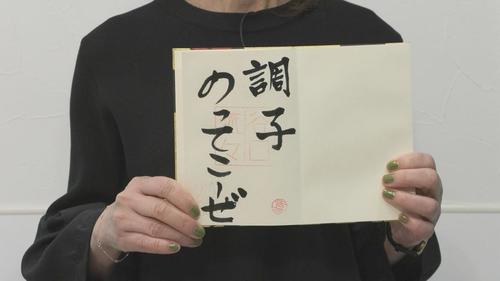 調子
のってこーぜ